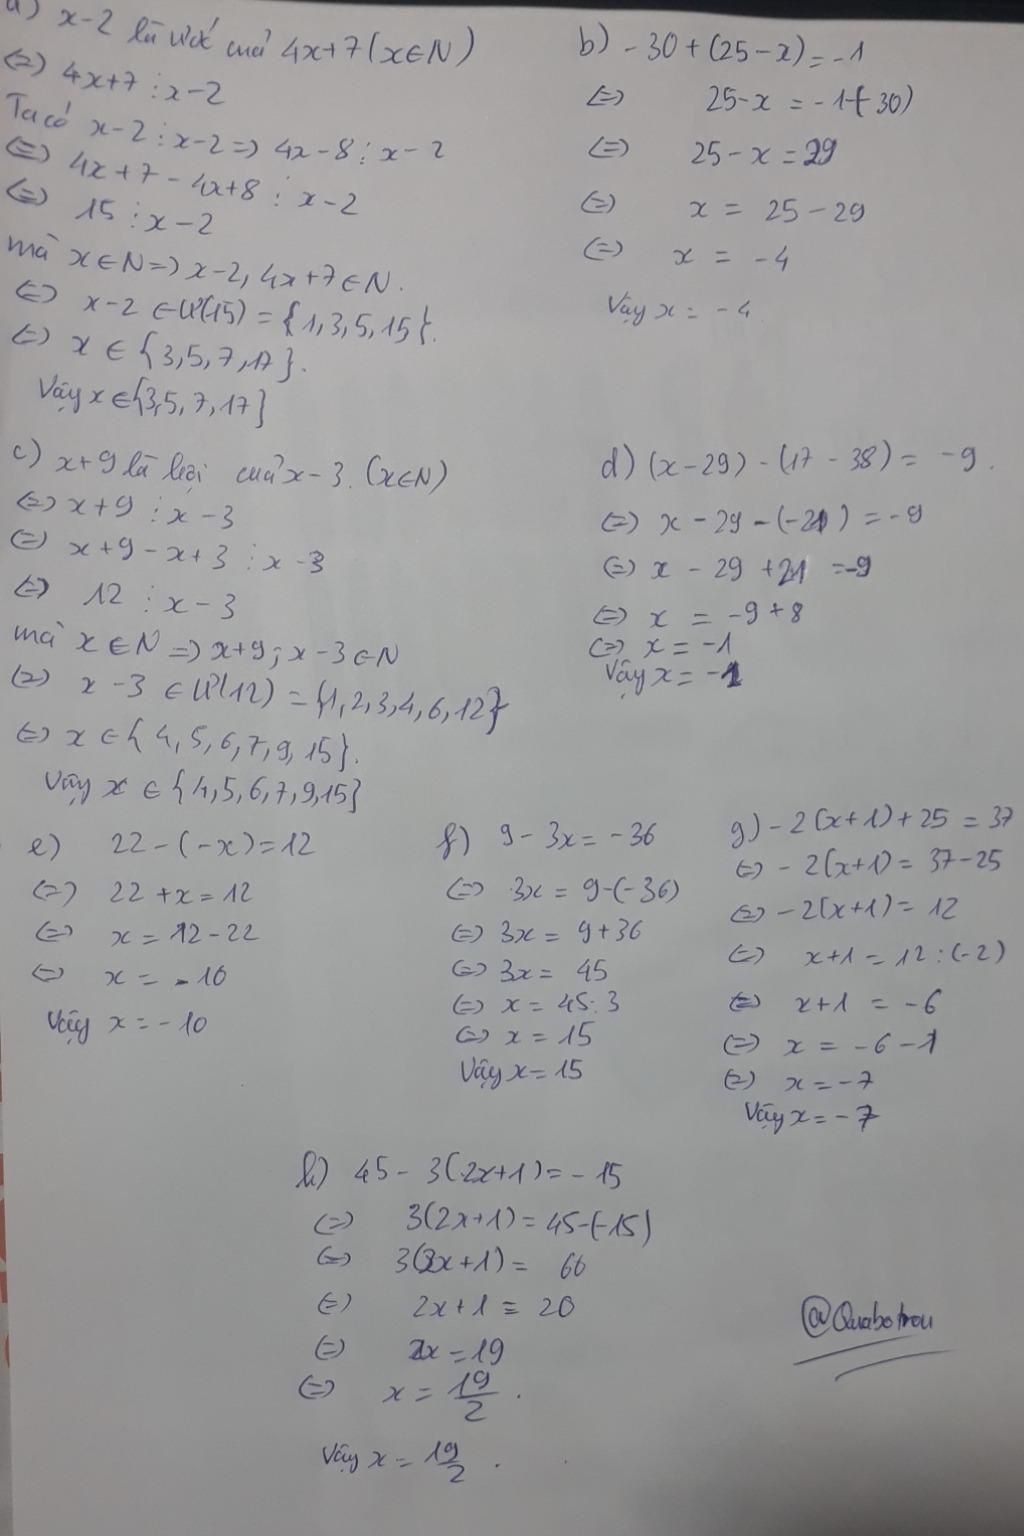 a) x-2 là ước cuả 4x+7 (x∈N)
(=) 4x+7 ⋮ x-2
Ta có x-2 ⋮ x-2 => 4x-8 ⋮ x-2
(=) 4x+7 - 4x+8 ⋮ x-2
(=) 15 ⋮ x-2
mà x∈N => x-2, 4x+7 ∈ N.
(=) x-2 ∈ Ư(15) = {1,3,5,15}.
(=) x ∈ {3,5,7,17}.
Vậy x∈{3,5,7,17}
b) -30+(25-x)=-1
(=) 25-x = -1-(-30)
(=) 25-x = 29
(=) x = 25-29
(=) x = -4
Vậy x = -4
c) x+9 là bội cuả x-3. (x∈N)
(=) x+9 ⋮ x-3
(=) x+9-x+3 ⋮ x-3
(=) 12 ⋮ x-3
mà x∈N => x+9; x-3∈N
(=) x-3 ∈ Ư(12) = {1,2,3,4,6,12}
(=) x∈{4,5,6,7,9,15}.
Vậy x ∈ {4,5,6,7,9,15}
d) (x-29)-(17-38) = -9.
(=) x-29-(-21) = -9
(=) x-29+21 =-9
(=) x = -9+8
(=) x = -1
Vậy x = -1
e) 22-(-x)=12
(=) 22+x=12
(=) x = 12-22
(=) x = -10
Vậy x = -10
f) 9-3x = -36
(=) 3x = 9-(-36)
(=) 3x = 9+36
(=) 3x = 45
(=) x = 45:3
(=) x = 15
Vậy x = 15
g) -2(x+1)+25 = 37
(=) -2(x+1) = 37-25
(=) -2(x+1) = 12
(=) x+1 = 12:(-2)
(=) x+1 = -6
(=) x = -6-1
(=) x = -7
Vậy x = -7
h) 45-3(2x+1) = -15
(=) 3(2x+1) = 45-(-15)
(=) 3(2x+1) = 60
(=) 2x+1 = 20
(=) 2x = 19
(=) x = 19/2.
Vậy x = 19/2.
@Quabotrou